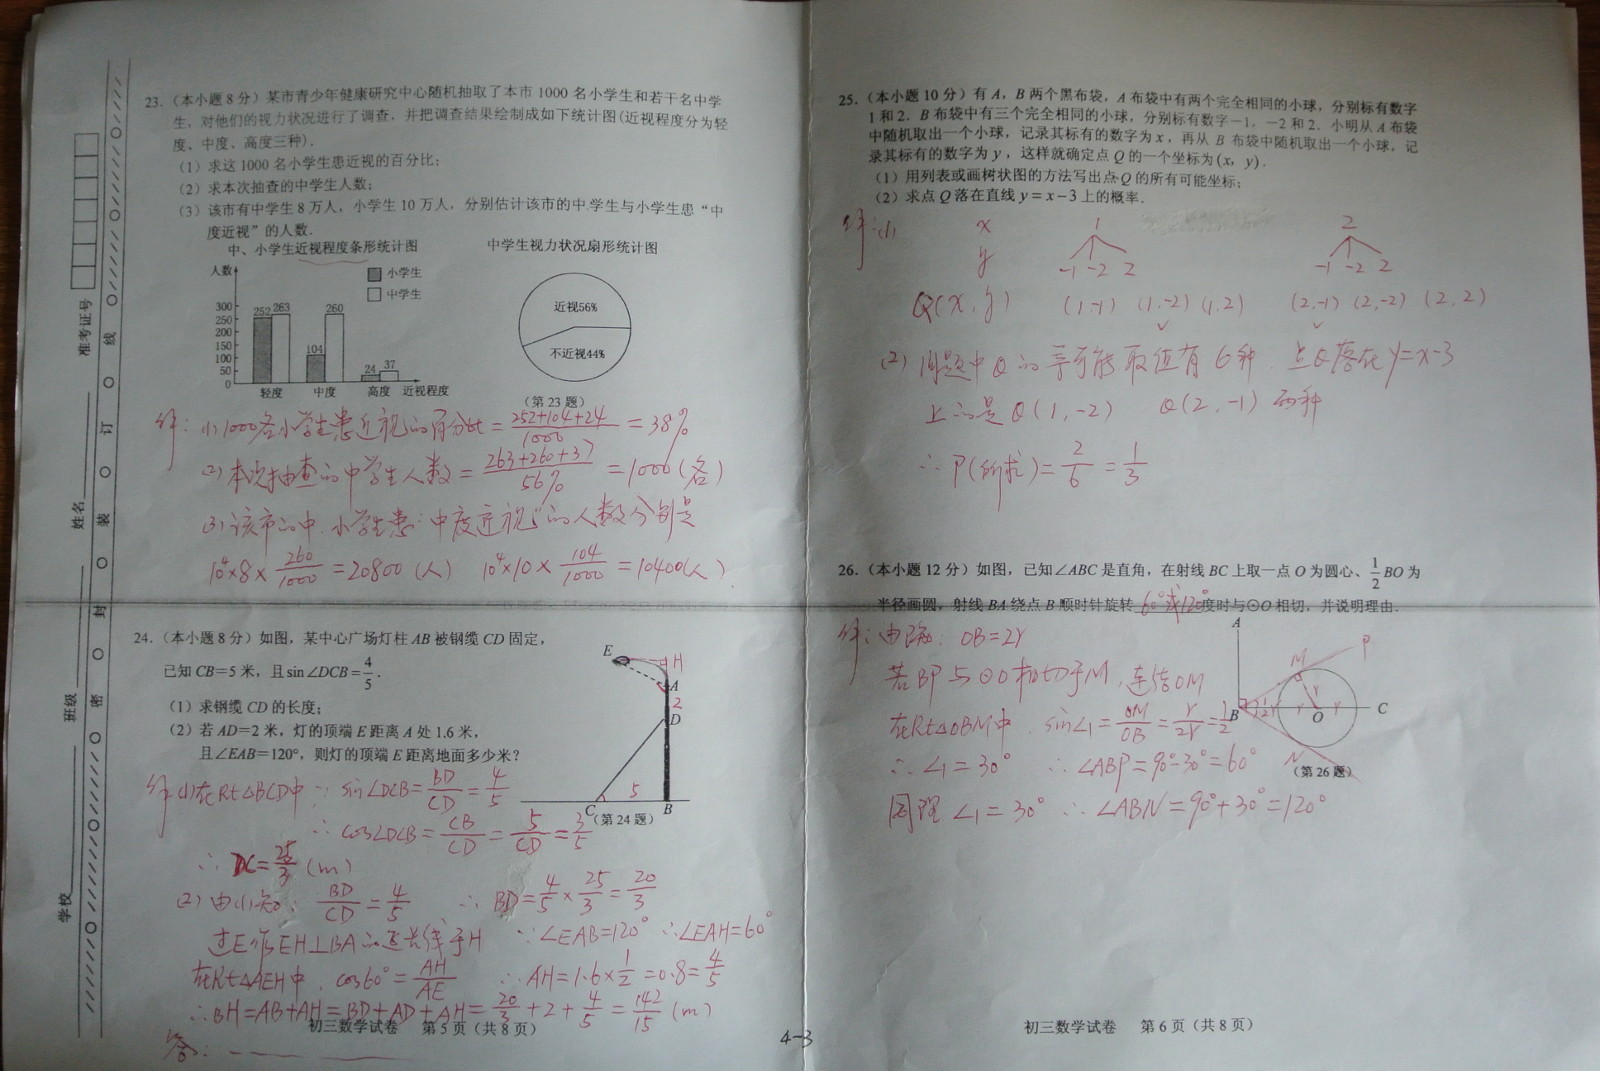 23.（本小题8分）某市青少年健康研究中心随机抽取了本市1000名小学生和若干名中学
生，对他们的视力状况进行了调查，并把调查结果绘制成如下统计图(近视程度分为轻
度、中度、高度三种).
（1）求这1000名小学生患近视的百分比；
（2）求本次抽查的中学生人数；
（3）该市有中学生8万人，小学生10万人，分别估计该市的中学生与小学生患“中
度近视”的人数.
中、小学生近视程度条形统计图
中学生视力状况扇形统计图
人数
小学生
中学生
300
250
200
150
100
50
0
252 263
104
260
24 37
轻度 中度 高度 近视程度
近视56%
不近视44%
（第23题）
解：(1) 1000名小学生患近视的百分比=(252+104+24)/1000=38%
(2) 本次抽查的中学生人数=(263+260+37)/56%=1000(名)
(3) 该市的中、小学生患“中度近视”的人数分别是
10⁴×8×260/1000=20800(人) 10⁴×10×104/1000=10400(人).
24.（本小题8分）如图，某中心广场灯柱AB被钢缆CD固定，
已知CB=5米，且sin∠DCB=4/5.
（1）求钢缆CD的长度；
（2）若AD=2米，灯的顶端E距离A处1.6米，
且∠EAB=120°，则灯的顶端E距离地面多少米？
E
H
A
2
D
C
5
B
（第24题）
解(1)在Rt△BCD中 ∵ sin∠DCB=BD/CD=4/5
∴ cos∠DCB=CB/CD=5/CD=3/5
∴ DC=25/3 (m)
(2) 由(1)知： BD/CD=4/5 ∴ BD=4/5×25/3=20/3
过E作EH⊥BA的延长线于H ∵∠EAB=120° ∴∠EAH=60°
在Rt△AEH中，cos60°=AH/AE ∴AH=1.6×1/2=0.8=4/5
∴BH=AB+AH=BD+AD+AH=20/3+2+4/5=142/15 (m)
答：
初三数学试卷 第5页（共8页）
学校
班级
姓名
准考证号
密
封
装
订
线
4-3
25.（本小题10分）有A，B两个黑布袋，A布袋中有两个完全相同的小球，分别标有数字
1和2．B布袋中有三个完全相同的小球，分别标有数字－1，－2和2．小明从A布袋
中随机取出一个小球，记录其标有的数字为x，再从B布袋中随机取出一个小球，记
录其标有的数字为y，这样就确定点Q的一个坐标为(x，y)．
（1）用列表或画树状图的方法写出点Q的所有可能坐标；
（2）求点Q落在直线y=x－3上的概率.
解：(1) x 1 2
y -1 -2 2 -1 -2 2
Q(x,y) (1,-1) (1,-2) (1,2) (2,-1) (2,-2) (2,2)
(2) 问题中Q的等可能取值有6种，点Q落在y=x-3
上的是Q(1,-2) Q(2,-1) 两种
∴ P(所求)=2/6=1/3
26.（本小题12分）如图，已知∠ABC是直角，在射线BC上取一点O为圆心、1/2 BO为
半径画圆，射线BA绕点B顺时针旋转 60°或120° 度时与⊙O相切，并说明理由.
A
P
M
B
O
C
N
r
（第26题）
解：由题： OB=2r
若BP与⊙O相切于M，连结OM
在Rt△OBM中，sin∠1=OM/OB=r/2r=1/2
∴∠1=30° ∴∠ABP=90°-30°=60°
同理 ∠1=30° ∴∠ABN=90°+30°=120°
初三数学试卷 第6页（共8页）